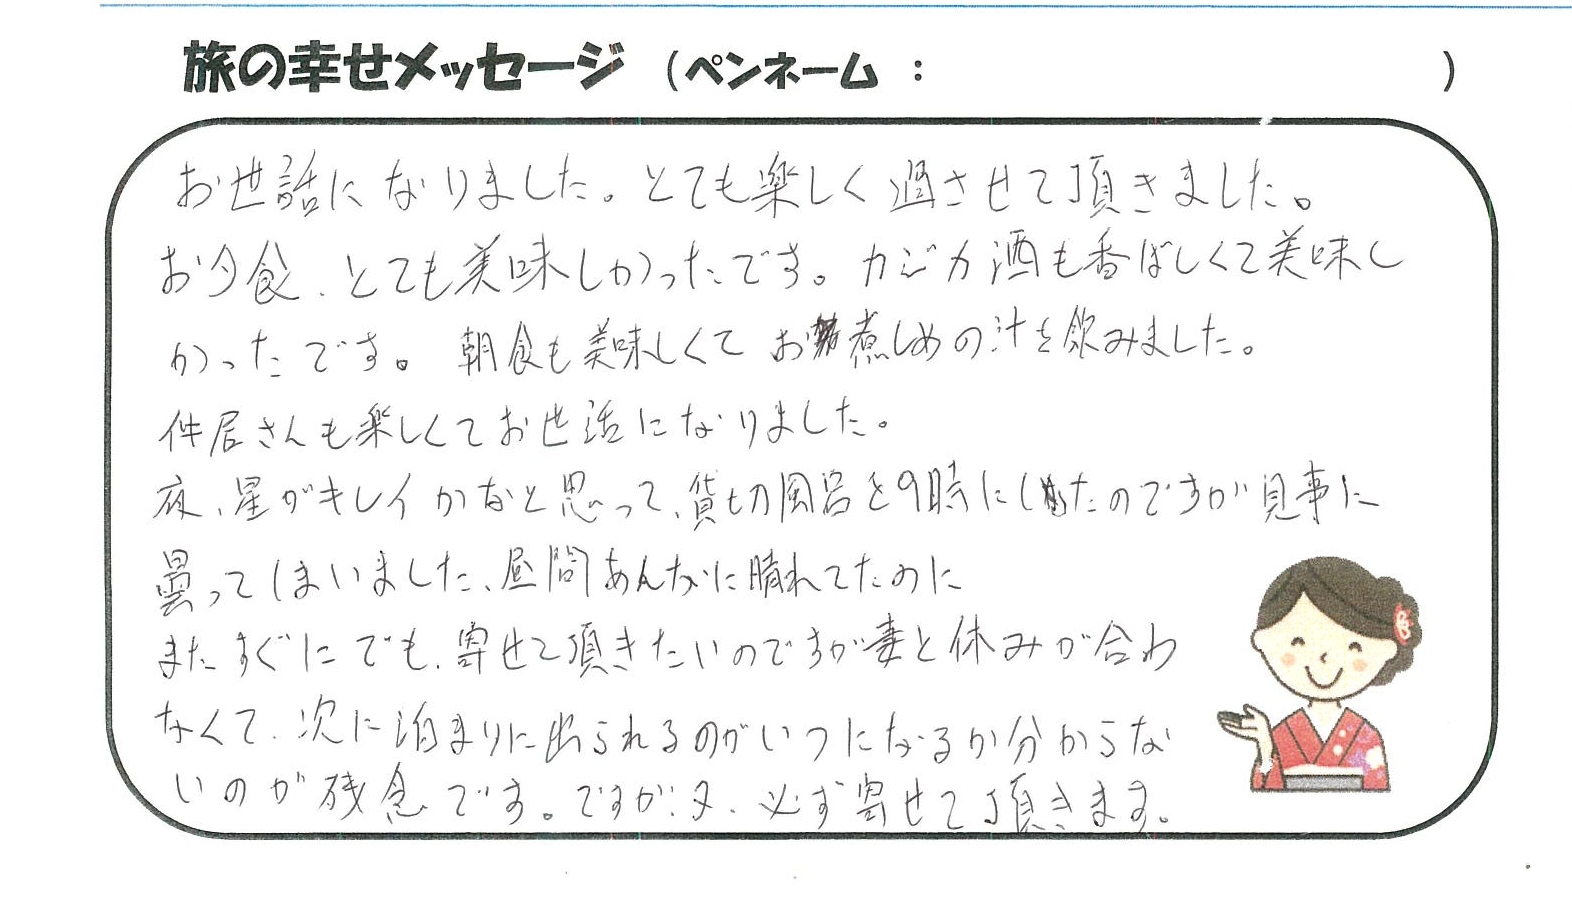 旅の幸せメッセージ (ペンネーム : )
お世話になりました。とても楽しく過させて頂きました。
お夕食、とても美味しかったです。カジカ酒も香ばしくて美味し
かったです。朝食も美味しくてお煮しめの汁を飲みました。
仲居さんも楽しくてお世話になりました。
夜、星がキレイかなと思って、貸切風呂を9時にしたのですが見事に
曇ってしまいました、昼間あんなに晴れてたのに
またすぐにでも、寄せて頂きたいのですが妻と休みが合わ
なくて、次に泊まりに出られるのがいつになるか分からな
いのが残念です。ですが又、必ず寄せて頂きます。